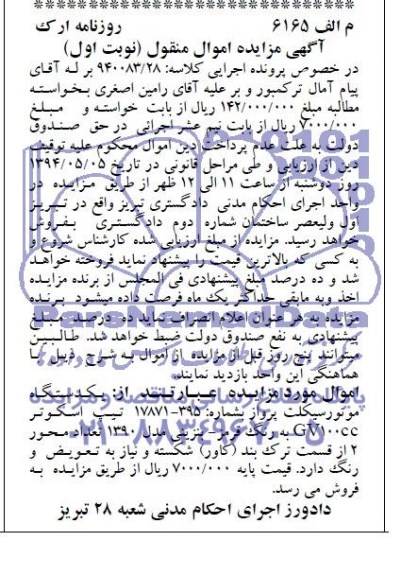 م الف ۶۱۶۵ روزنامه ارک
آگهی مزایده اموال منقول (نوبت اول)
در خصوص پرونده اجرایی کلاسه: ۹۴۰۰۸۳/۲۸ بر له آقای
پیام آمال ترکمپور و بر علیه آقای رامین اصغری بخواسته
مطالبه مبلغ ۱۴۲/۰۰۰/۰۰۰ ریال از بابت خواسته و مبلغ
۷/۰۰۰/۰۰۰ ریال از بابت نیم عشر اجرائی در حق صندوق
دولت به علت عدم پرداخت دین اموال محکوم علیه توقیف
دین از ارزیابی و طی مراحل قانونی در تاریخ ۱۳۹۴/۰۵/۰۵
روز دوشنبه از ساعت ۱۱ الی ۱۲ ظهر از طریق مزایده در
واحد اجرای احکام مدنی دادگستری تبریز واقع در تبریز
اول ولیعصر ساختمان شماره دوم دادگستری بفروش
خواهد رسید. مزایده از مبلغ ارزیابی شده کارشناس شروع و
به کسی که بالاترین قیمت را پیشنهاد نماید فروخته خواهد
شد و ده درصد مبلغ پیشنهادی فی المجلس از برنده مزایده
اخذ وبه مابقی حداکثر یک ماه فرصت داده میشود برنده
مزایده به هر عنوان اعلام انصراف نماید ده درصد مبلغ
پیشنهادی به نفع صندوق دولت ضبط خواهد شد. طالبین
میتوانند پنج روز قبل از مزایده از اموال به شرح ذیل با
هماهنگی این واحد بازدید نمایند.
اموال مورد مزایده عبارتند از: یکدستگاه
موتورسیکلت پرواز بشماره: ۳۹۵-۱۷۸۷۱ تیپ اسکوتر
GV۱۰۰cc به رنگ قرمز- بنزینی مدل ۱۳۹۰ تعداد محور
۲ از قسمت ترک بند (کاور) شکسته و نیاز به تعویض و
رنگ دارد. قیمت پایه ۷/۰۰۰/۰۰۰ ریال از طریق مزایده به
فروش می رسد.
دادورز اجرای احکام مدنی شعبه ۲۸ تبریز
ParsNamadData
۰۲۱-۸۸۳۴۹۶۷۰-۵